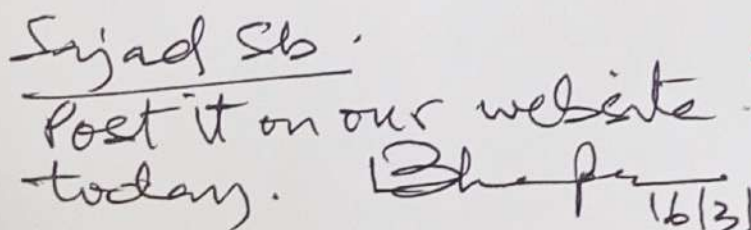 Sajad Sb.
Post it on our website
today.
16/3/